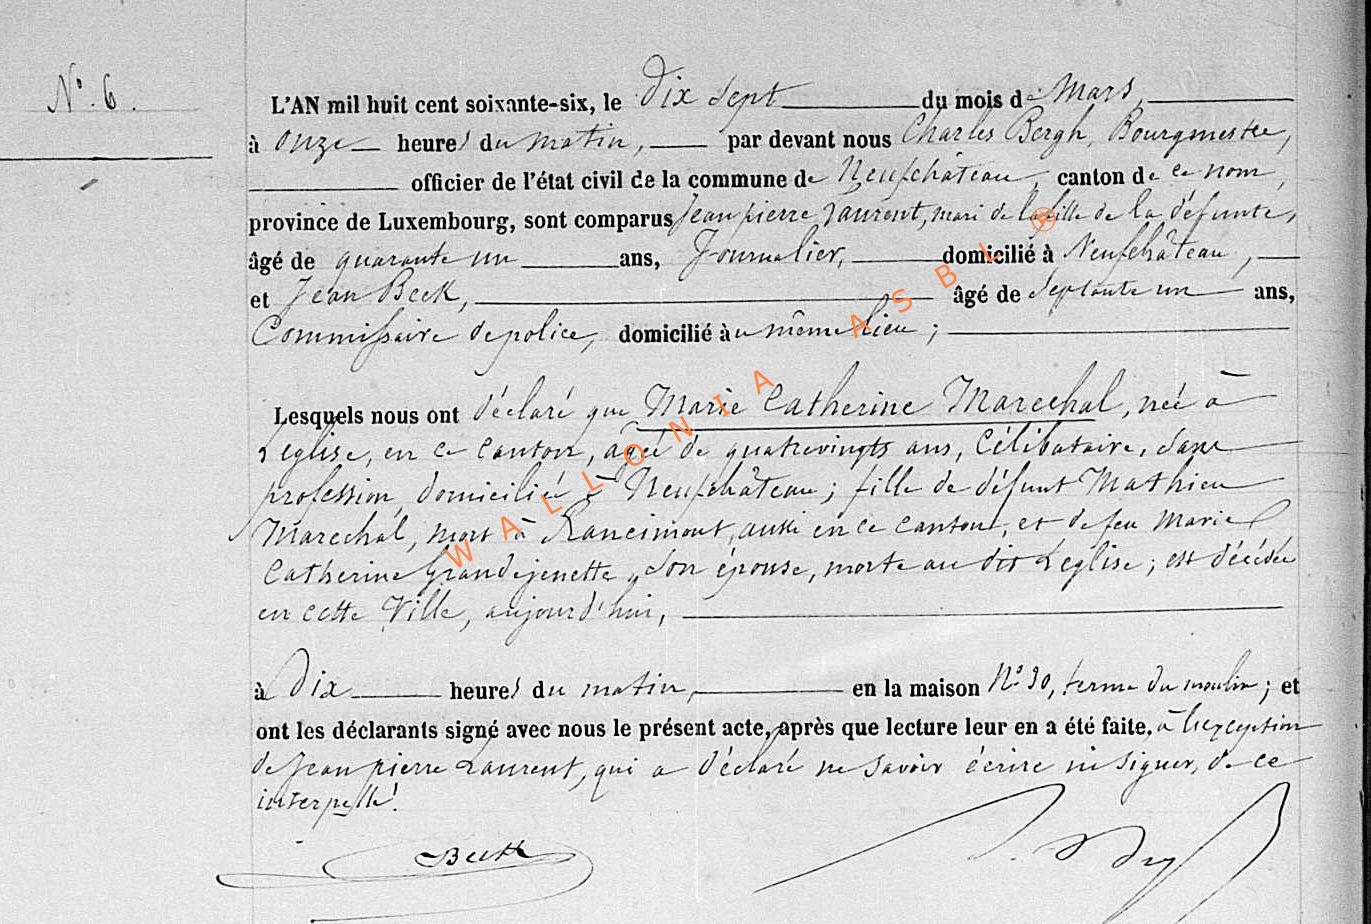 N° 6.
L'AN mil huit cent soixante-six, le Dix sept du mois de Mars,
à onze heures du matin, par devant nous Charles Bergh, Bourgmestre,
officier de l'état civil de la commune de Neufchâteau, canton de ce nom,
province de Luxembourg, sont comparus Jean pierre Laurent, mari de la fille de la défunte,
âgé de quarante un ans, Journalier, domicilié à Neufchâteau,
et Jean Beck, âgé de septante un ans,
Commissaire de police, domicilié au même lieu;
Lesquels nous ont déclaré que Marie Catherine Marechal, née à
Léglise, en ce canton, âgée de quatrevingts ans, Célibataire, sans
profession, domiciliée à Neufchâteau; fille de défunt Mathieu
Marechal, mort à Rancimont, aussi en ce canton, et de feu Marie
Catherine Grandejenette, son épouse, morte au dit Léglise; est décédée
en cette Ville, aujourd'hui,
à Dix heures du matin, en la maison N° 30, terme du moulin; et
ont les déclarants signé avec nous le présent acte, après que lecture leur en a été faite, à l'exception
de Jean pierre Laurent, qui a déclaré ne savoir écrire ni signer, de ce
interpellé.
Beck
WALLONIA ASBL ®